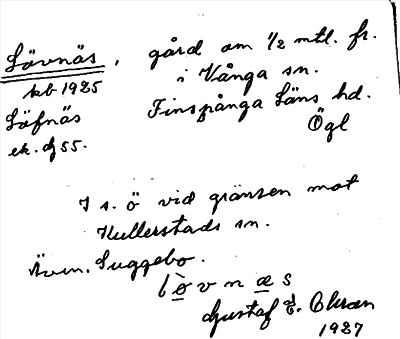 Lövnäs, gård om 1/2 mtl. fr.
i Vånga sn.
kb 1925
Finspånga Läns hd.
Löfnäs
Ögl
ek. bj 55.
I s. ö vid gränsen mot
Kullerstads sn.
Även. Suggebo.
lò̱v n æ̱ s
Gustaf
1927